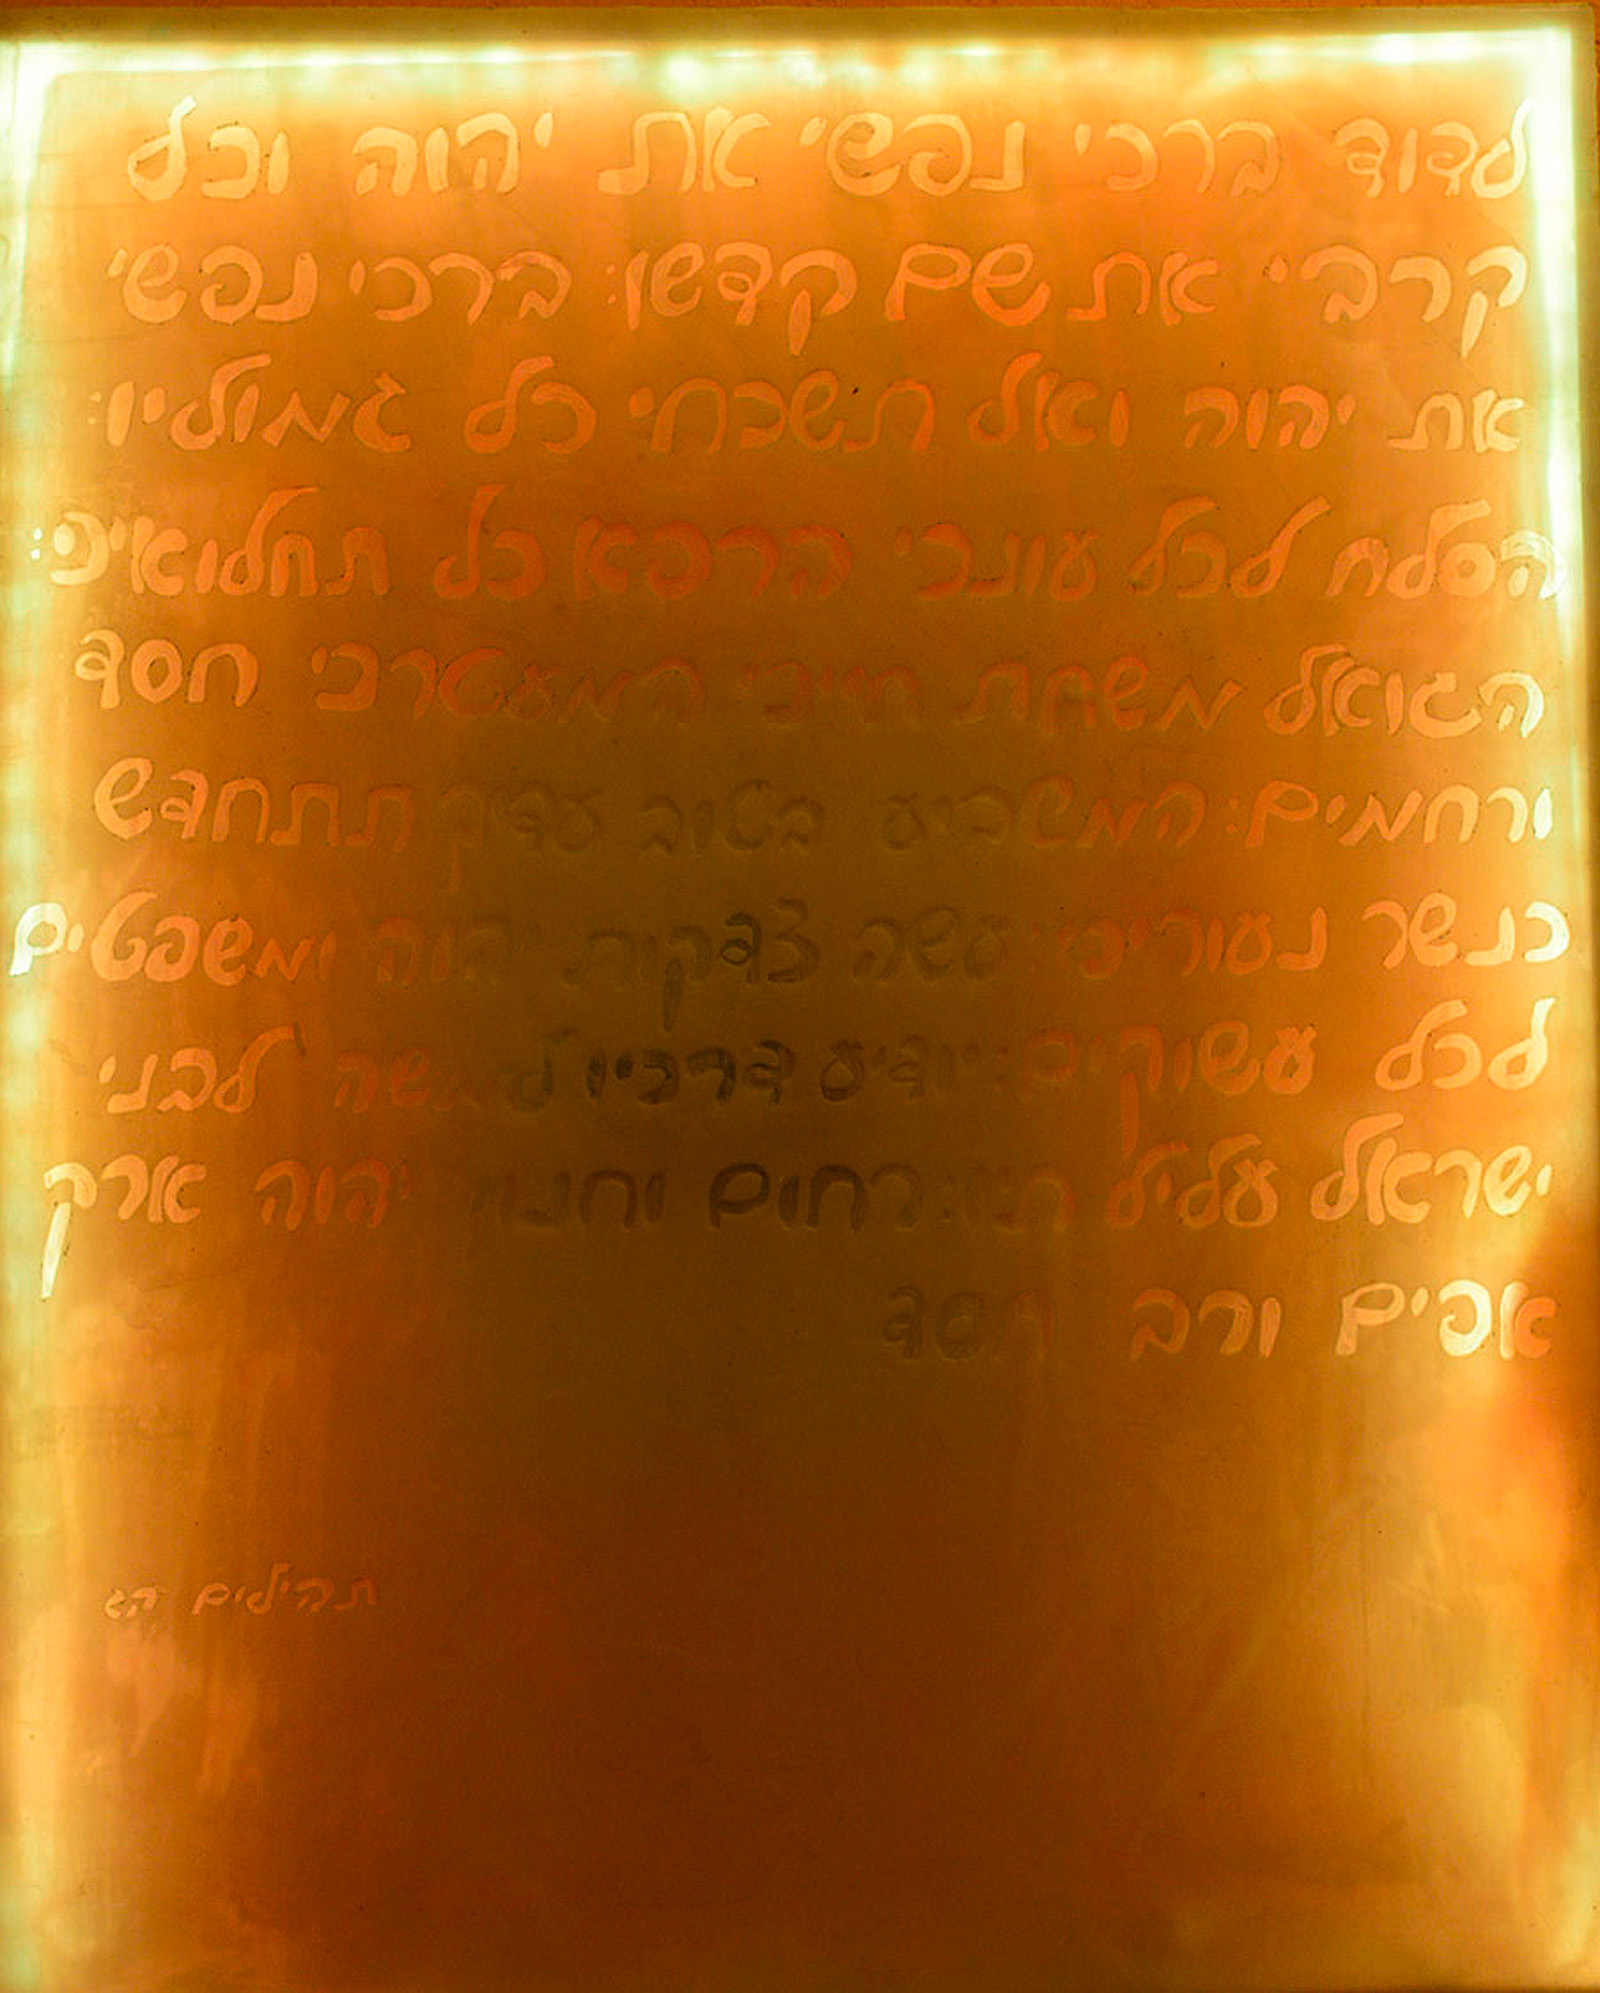 לדוד ברכי נפשי את יהוה וכל
קרבי את שם קדשו: ברכי נפשי
את יהוה ואל תשכחי כל גמוליו:
הסלח לכל עונכי הרפא כל תחלואיכי:
הגואל משחת חייכי המעטרכי חסד
ורחמים: המשביע בטוב עדיך תתחדש
כנשר נעוריכי: עשה צדקות יהוה ומשפטים
לכל עשוקים: יודיע דרכיו למשה לבני
ישראל עלילתיו: רחום וחנון יהוה ארך
אפים ורב חסד
תהילים קג